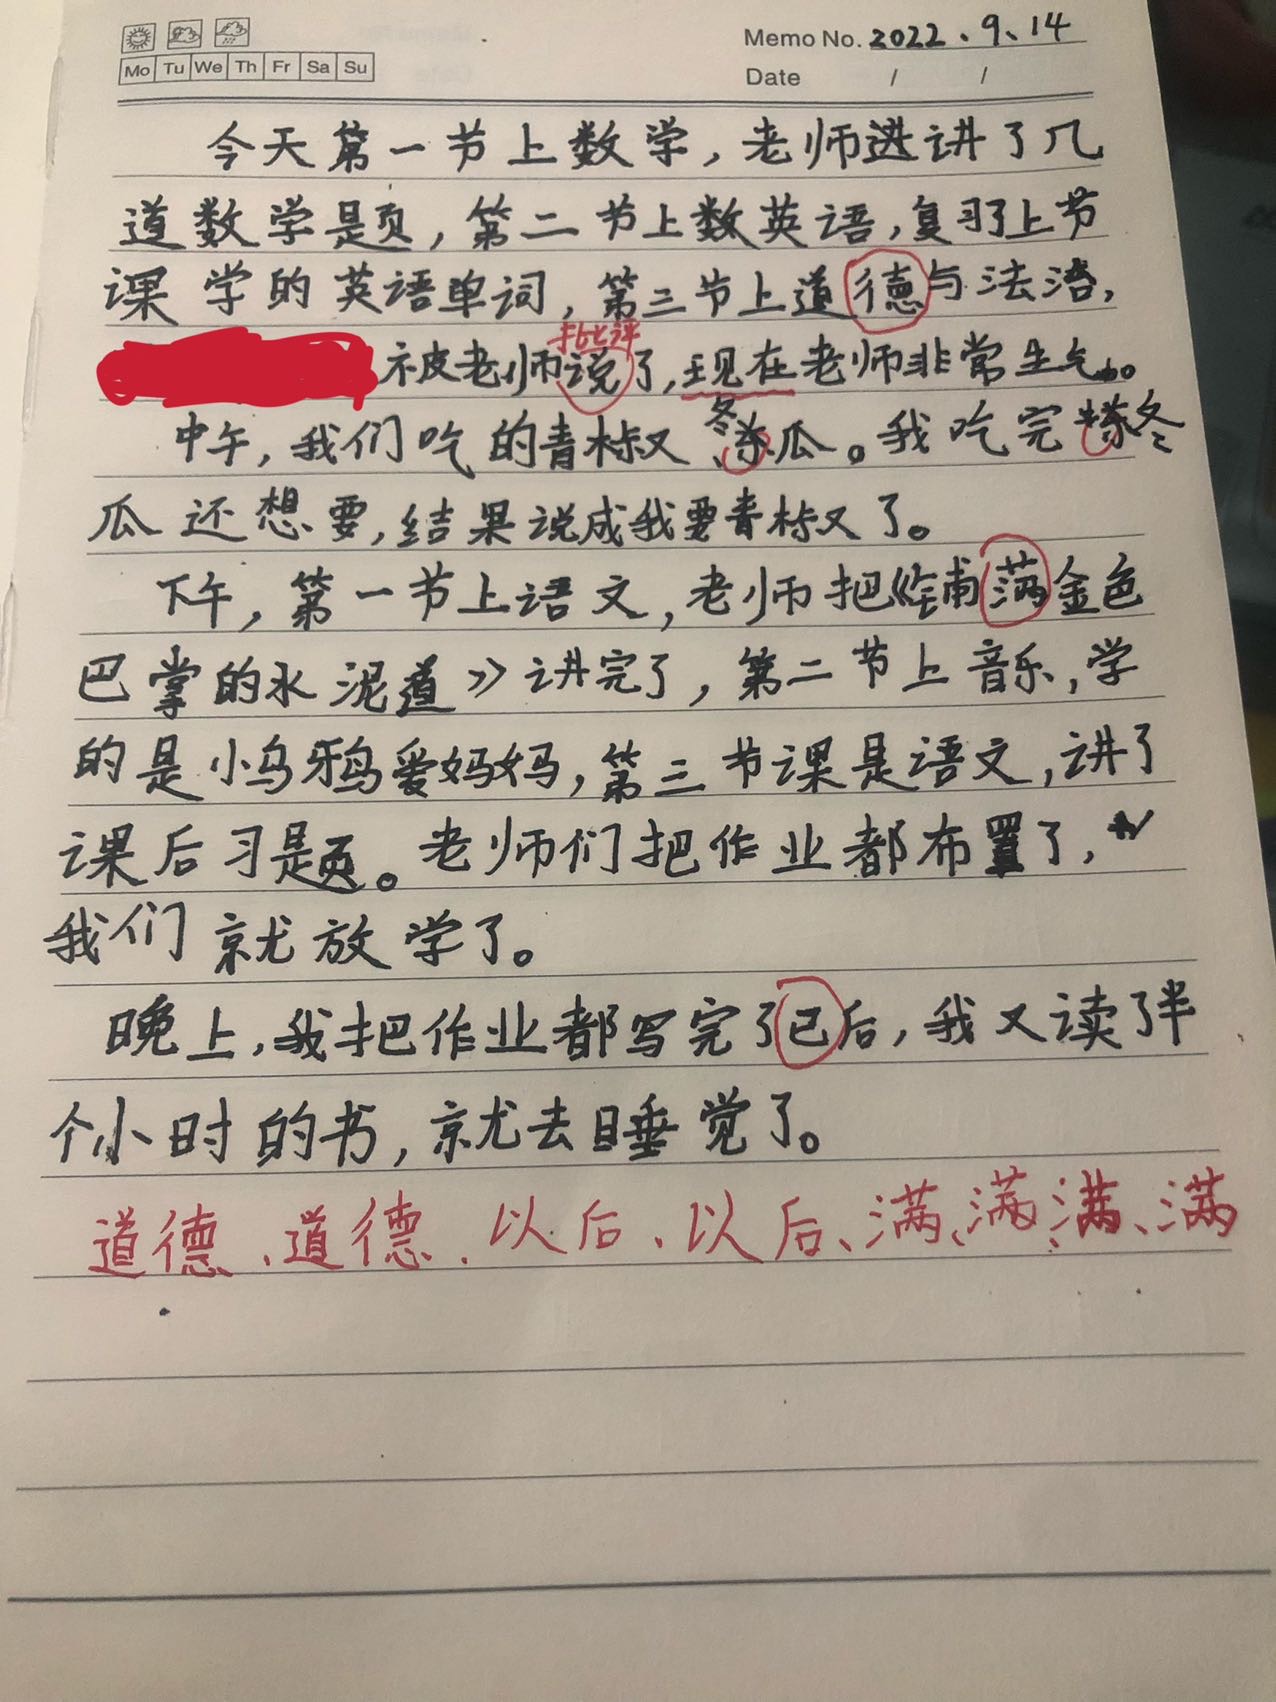 Memo No. 2022.9.14
Mo Tu We Th Fr Sa Su
Date / /
今天第一节上数学，老师进讲了几
道数学题，第二节上数英语，复习了上节
课学的英语单词，第三节上道德与法治，
批评
被老师说了，现在老师非常生气。
中午，我们吃的青椒冬瓜。我吃完冬
瓜还想要，结果说成我要青椒了。
下午，第一节上语文，老师把《铺满金色
巴掌的水泥道》讲完了，第二节上音乐，学
的是小乌鸦爱妈妈，第三节课是语文，讲了
课后习题。老师们把作业都布置了，
我们就放学了。
晚上，我把作业都写完了已后，我又读了半
个小时的书，就去睡觉了。
道德、道德、以后、以后、满、满、满、满